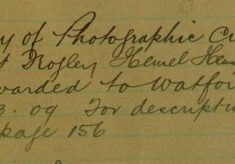 y of Photographic C
t Nogley Hemel Hem
warded to Watfor
3. 09 For descripti
page 156